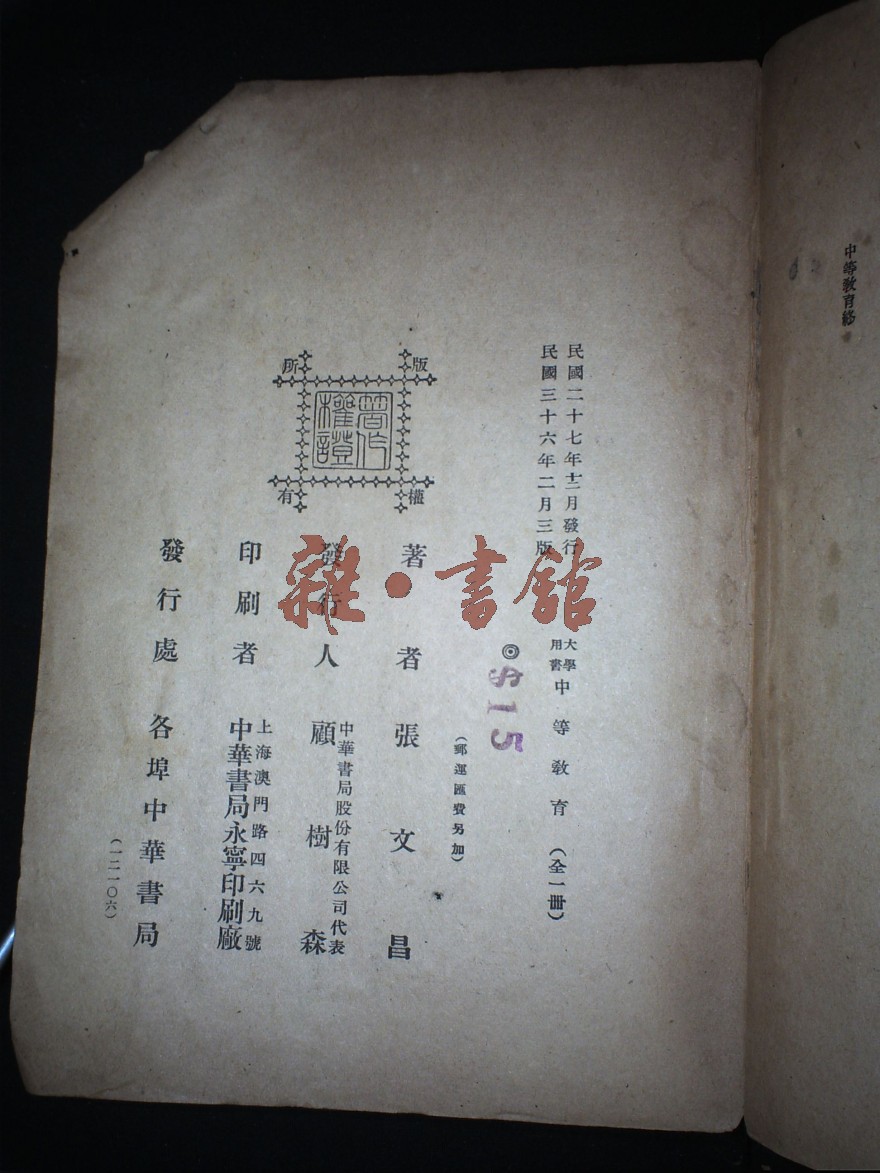 中等教育終
民國二十七年十二月發行
民國三十六年二月三版
大學用書 中等教育(全一冊)
◎$15
(郵運匯費另加)
著者 張文昌
中華書局股份有限公司代表
發行人 顧樹森
上海澳門路四六九號
印刷者 中華書局永寧印刷廠
發行處 各埠中華書局
(一二一〇六)
版權所有
著作權證
雜·書館